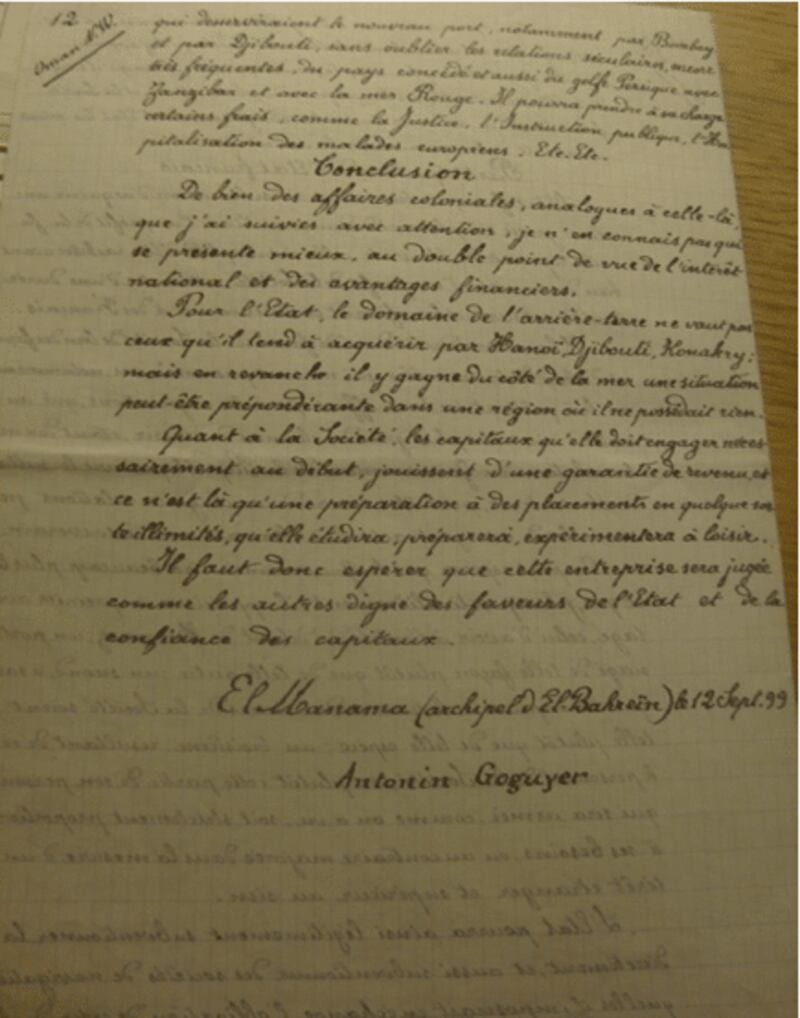 12
Oman N.W.
qui desserviraient le nouveau port, notamment par Bombay
et par Djibouti, sans oublier les relations séculaires, encore
très fréquentes, du pays concédé et aussi du golfe Persique avec
Zanzibar et avec la mer Rouge. Il pourra prendre à sa charge
certains frais, comme la Justice, l'Instruction publique, l'Hos
pitalisation des malades européens. Etc. Etc.
Conclusion
De bien des affaires coloniales, analogues à celle-là,
que j'ai suivies avec attention, je n'en connais pas qui
se présente mieux, au double point de vue de l'intérêt
national et des avantages financiers.
Pour l'Etat, le domaine de l'arrière-terre ne vaut pas
ceux qu'il tend à acquérir par Hanoï, Djibouti, Konakry;
mais en revanche il y gagne du côté de la mer une situation
peut-être prépondérante dans une région où il ne possédait rien.
Quant à la Société, les capitaux qu'elle doit engager néces
sairement au début, jouissent d'une garantie de revenu, et
ce n'est là qu'une préparation à des placements en quelque sor
te illimités, qu'elle étudira, préparera, expérimentera à loisir.
Il faut donc espérer que cette entreprise sera jugée
comme les autres digne des faveurs de l'Etat et de la
confiance des capitaux.
El Manama (archipel d'El-Bahreïn) le 12 Sept. 99
Antonin Goguyer